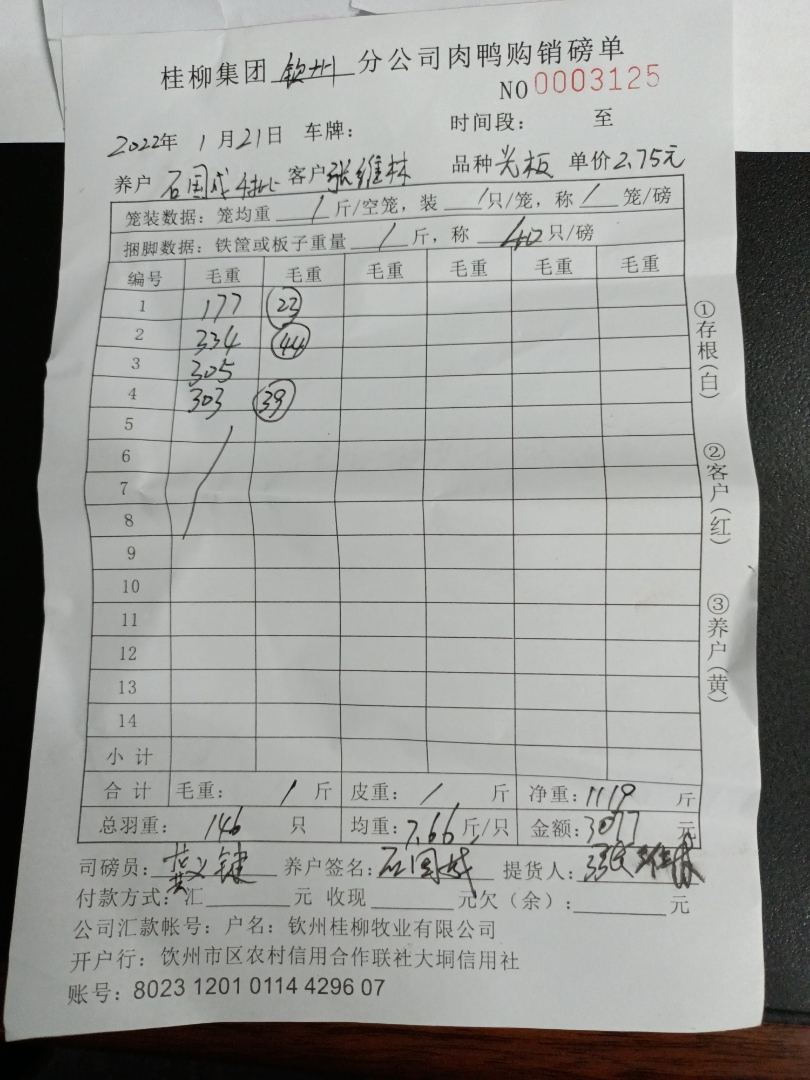 桂柳集团 钦州 分公司肉鸭购销磅单
NO 0003125
2022年 1月21日 车牌： 时间段： 至
养户 石国成 客户 张维林 品种 光板 单价 2.75元
笼装数据：笼均重 / 斤/空笼，装 / 只/笼，称 / 笼/磅
捆脚数据：铁筐或板子重量 / 斤，称 40 只/磅
编号 毛重 毛重 毛重 毛重 毛重 毛重
1 177 23
2 334 44
3 305
4 303 39
5
6
7
8
9
10
11
12
13
14
小计
合计 毛重： / 斤 皮重： / 斤 净重：1119 斤
总羽重： 146 只 均重：7.66斤/只 金额：3077 元
司磅员：黄义键 养户签名：石国成 提货人：张维林
付款方式：汇 元 收现 元欠（余）： 元
公司汇款帐号：户名：钦州桂柳牧业有限公司
开户行：钦州市区农村信用合作联社大垌信用社
账号：8023 1201 0114 4296 07
①存根（白）
②客户（红）
③养户（黄）